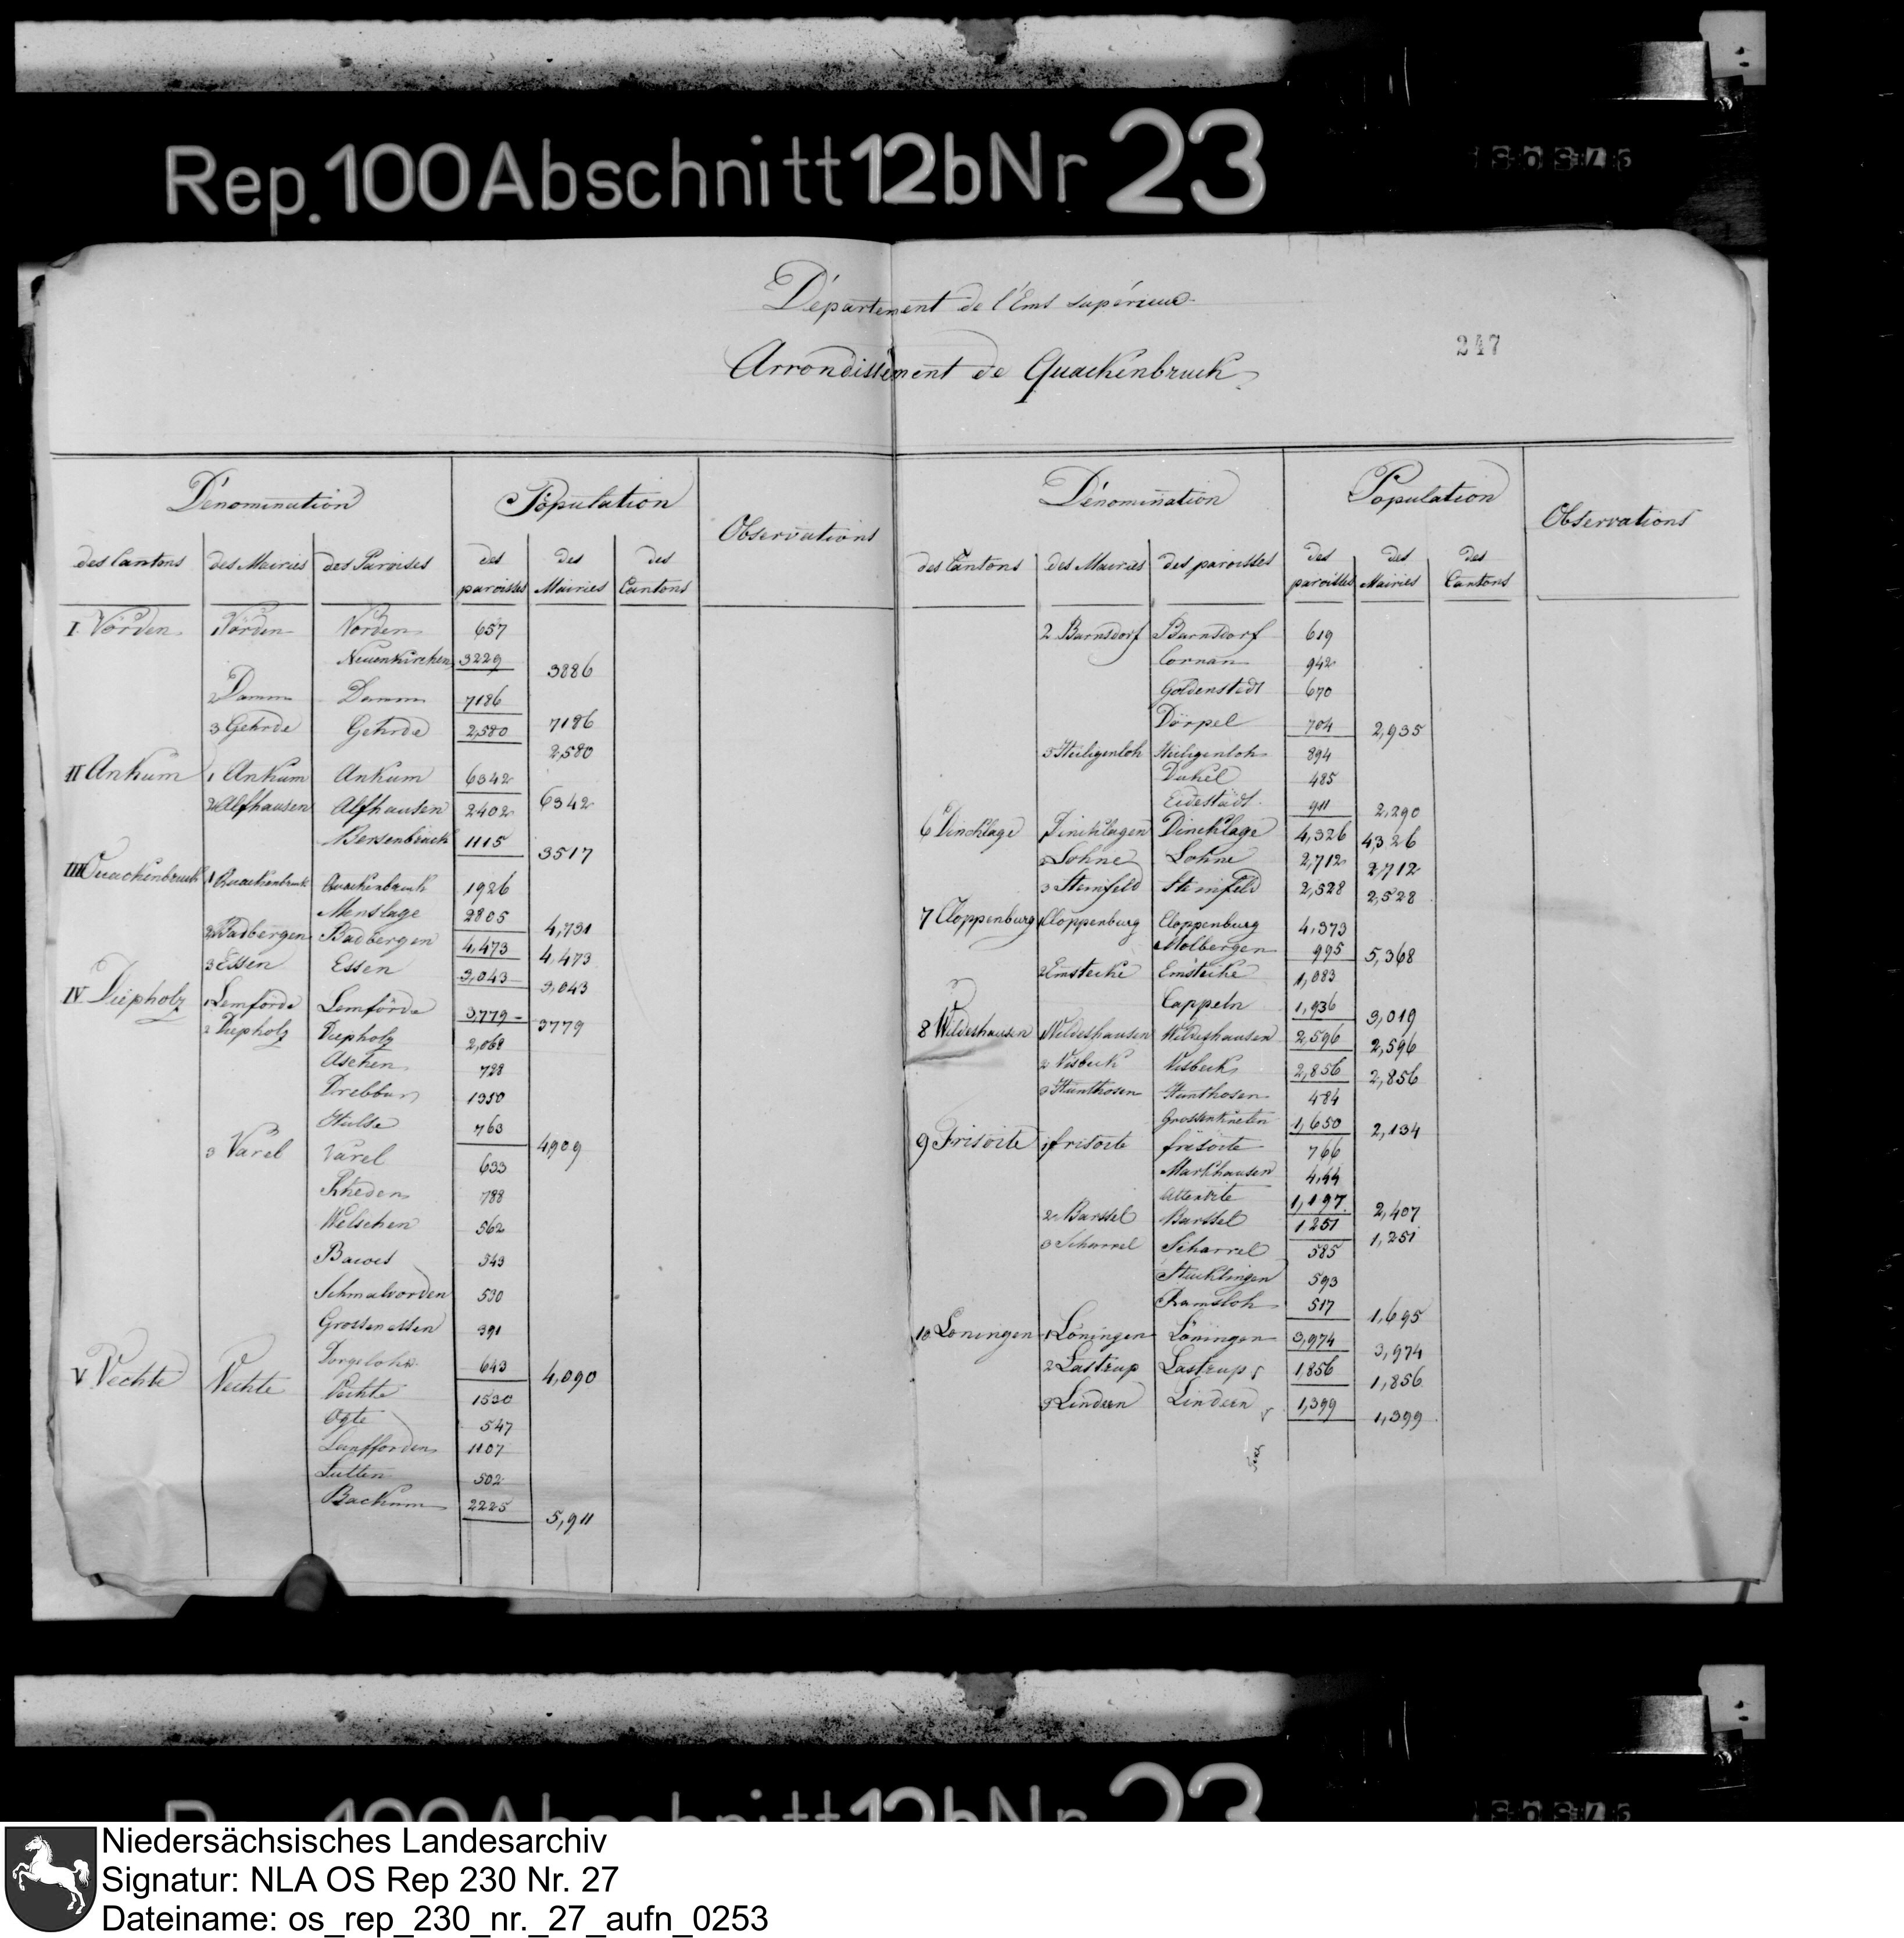 Rep. 100 Abschnitt 12b Nr 23
Département de l'Ems supérieur
247
Arrondissement de Quackenbruck
Dénomination Population Observations
des Cantons des Mairies des Paroises des paroisses des Mairies des Cantons
I Vörden 1 Vörden Vörden 657
Neuenkirchen 3229 3886
2 Damm Damm 7186 7186
3 Gehrde Gehrde 2,580 2,580
II Ankum 1 Ankum Ankum 6342 6342
2 Alfhausen Alfhausen 2402
Bersenbrück 1115 3517
III Quackenbruck 1 Quackenbruck Quackenbruck 1926
Menslage 2805 4,731
2 Badbergen Badbergen 4,473 4,473
3 Essen Essen 3,043 3,043
IV Diepholz 1 Lemförde Lemförde 3,779 3779
2 Diepholz Diepholz 2,068
Aschen 728
Drebber 1350
Hülse 763 4,909
3 Varel Varel 633
Rheden 788
Wetschen 562
543
Schmalvorden 530
Grossenessen 391
643 4,090
V Vechte Vechte Vechte 1530
Oyte 547
Lanfforden 1107
Lutten 502
Backum 2225 5,911
Dénomination Population Observations
des Cantons des Mairies des paroisses des paroisses des Mairies des Cantons
2 Barnsdorf Barnsdorf 619
Cornan 942
Goldenstedt 670
Dörpel 704 2,935
Heiligenloh Heiligenloh 894
485
Eidestädt 911 2,290
6 Dincklage Dincklagen Dincklage 4,326 4,326
2 Lohne Lohne 2,712 2,712
3 Steinfeld Steinfeld 2,528 2,528
7 Cloppenburg 1 Cloppenburg Cloppenburg 4,373
Molbergen 995 5,368
2 Emstecke Emstecke 1,083
Cappeln 1,936 3,019
8 Wildeshausen Wildeshausen Wildeshausen 2,596 2,596
2 Visbeck Visbeck 2,856 2,856
3 Hunthosen Hunthosen 484
Grossenkneten 1,650 2,134
9 Frisoite 1 frisoite frisoite 766
Markhausen 4,44
Altenoite 1,197 2,407
2 Barssel Barssel 1251 1,251
3 Scharrel Scharrel 585
Stucklingen 593
Ramsloh 517 1,695
10 Loningen 1 Löningen Löningen 3,974 3,974
2 Lastrup Lastrup 1,856 1,856
3 Lindern Lindern 1,399 1,399
Rep. 100 Abschnitt 12b Nr 23
Niedersächsisches Landesarchiv
Signatur: NLA OS Rep 230 Nr. 27
Dateiname: os_rep_230_nr._27_aufn_0253